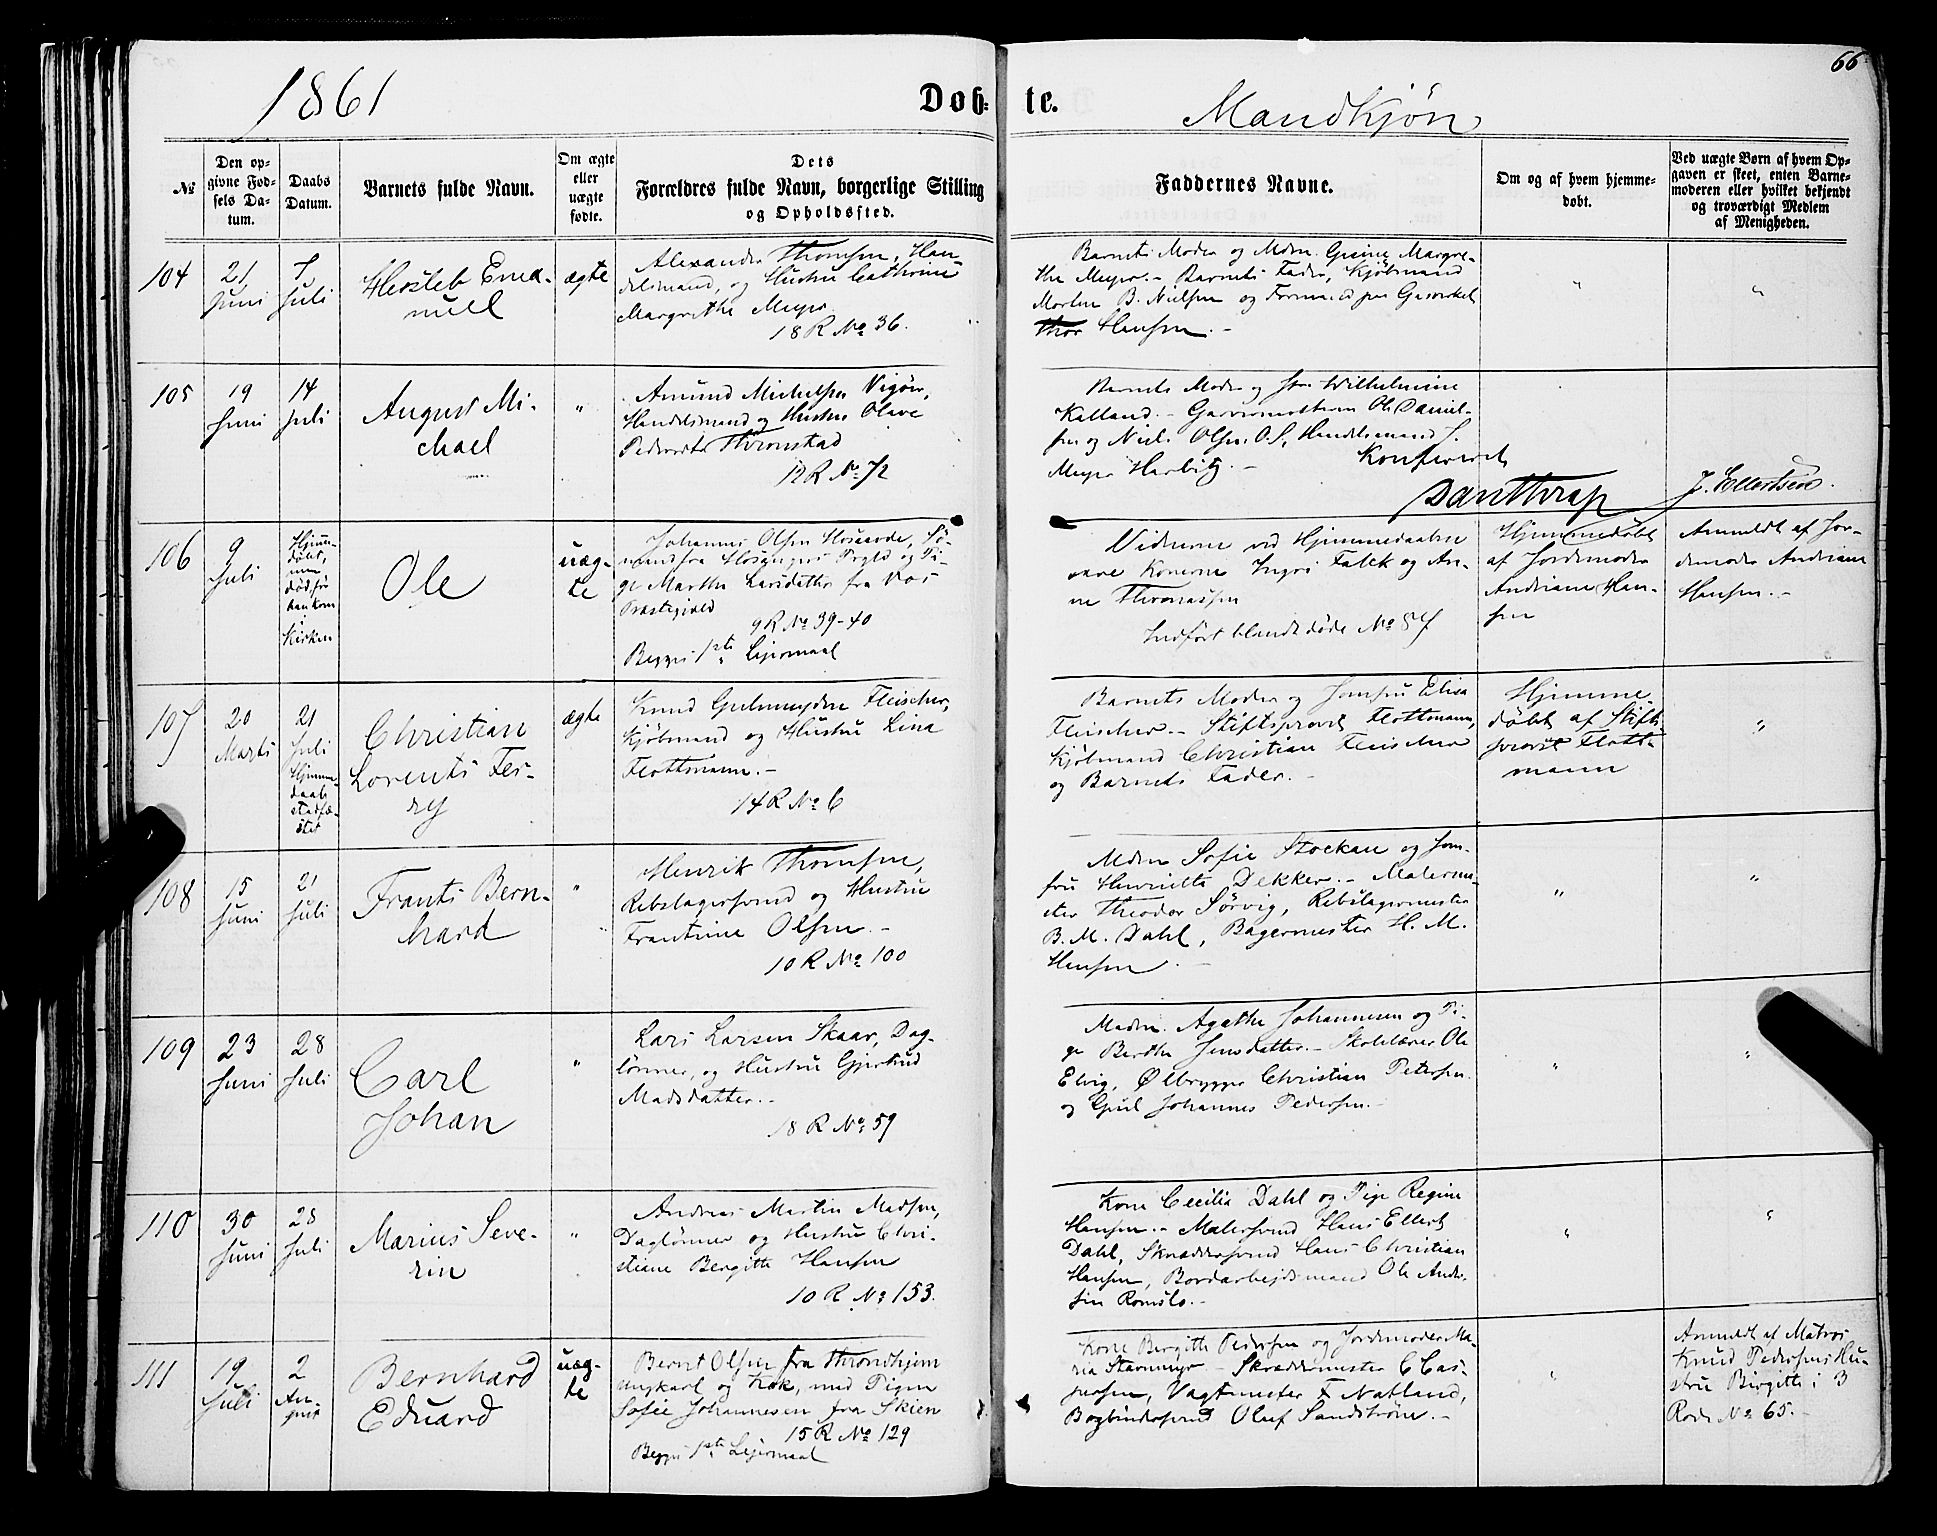 66
1861
Døb- te.
Mandkjøn
№
Den op-
givne Fød-
sels Da-
tum.
Daabs
Datum.
Barnets fulde Navn.
Om ægte
eller
uægte
fødte.
Dets
Forældres fulde Navn, borgerlige Stilling
og Opholdssted.
Faddernes Navne.
Om og af hvem hjemme-
døbt.
Ved uægte Børn af hvem Op-
gaven er skeet, enten Barne-
moderen eller hvilket bekjendt
og troværdigt Medlem
af Menigheden.
104
21
Juni
7
Juli
Hersleb Ema-
nuel
ægte
Alexander Thomsen, Han-
delsmand, og Hustru Cathrine
Margrethe Meyer
18 R № 36.
Barnets Moder og Mdm. Margre-
the Meyer. - Barnets Fader, Kjøbmand
Morten B. Nielsen og Formand paa Gasverket
Thor Hansen. -
"
"
105
19
Juni
14
Juli
August Mi-
chael
"
Amund Michelsen
Handelsmand og Hustru Olave
Pedersdtr Thronstad
12 R № 72
Barnets Moder og Wilhelmine
Kalland. - Ole Daniel-
sen og Niels Olsen O.S., Handelsmand J.
Meyer Herbitz. -
Konfereret
J. Ellertsen.
106
9
Juli
Hjemme-
døbt,
men
død, før
han kom
i
Kirken
Ole
uæg-
te
Johannes Olsen Sø-
mand fra Prgld og Pi-
ge Martha Larsdatter fra Vos
Præstegjeld
9 R № 39-40
Begges 1ste Lejermaal
Vidnerne ved Hjemmedaaben
vare Konerne Inger Falck og An-
ne Thomassen
Indført blandt døde № 57
Hjemmedøbt
af Jordemoder
Andriane Han-
sen
Anmeldt af Jor-
demoder Andriane
Hansen. -
107
20
Marts
21
Juli
Hjemme-
daab
stadfæ-
stet
Christian
Lorents Fer-
ry
ægte
Knud Geelmuyden Fleischer,
Kjøbmand og Hustru Lina
Flottmann. -
14 R № 6
Barnets Moder og Jomfru Elisa
Fleischer. - Stiftsprovst Flottmann,
Kjøbmand Christian Fleischer
og Barnets Fader. -
Hjemme
døbt af Stifts
provst Flott-
mann
"
108
15
Juni
21
Juli
Frants Bern-
hard
"
Henrik Thomsen,
Rebslagersvend og Hustru
Frantine Olsen. -
10 R № 100
Mdm Sofie Stockan og Jom-
fru Henriette Dekker. - Malerme-
ster Theodor Sørvig, Rebslagermester
B. M. Dahl, Bagermester H. M.
Hensen. -
"
"
109
23
Juni
28
Juli
Carl
Johan
"
Lars Larsen Skaar, Dag-
lønner, og Hustru Gjertrud
Madsdatter. -
18 R № 59
Madm. Agathe Johannesen og Pi-
ge Berthe Jensdatter. - Skolelærer Ole
Elvig, Ølbrygger Christian Petersen
og Johannes Pedersen. -
"
"
110
30
Juni
28
Juli
Marius Seve-
rin
"
Andreas Martin Madsen,
Daglønner og Hustru Chri-
stiane Bergitte Hansen
10 R № 153.
Kone Cecilia Dahl og Pige Regine
Hansen. - Malersvend Hans Ellert
Dahl, Skræddersvend Hans Christian
Hansen, Bordarbejdsmand Ole Ander-
sen Romslo. -
"
"
111
19
Juli
2
Au-
gust
Bernhard
Eduard
uæg-
te
Bernt Olsen fra Throndhjem
Ungkarl og Kok, med Pigen
Sofie Johannesen fra Skien
15 R № 129
Begges 1ste Lejermaal
Kone Bergitte Pedersen og Jordemoder Ma-
ria - Skræddermester C Cas-
persen, Vagtmester F Natland,
Bogbindersvend Oluf Sandstrøm. -
"
Anmeldt af Matros
Knud Pedersens Hu-
stru Birgitte i 3
Rode № 65. -